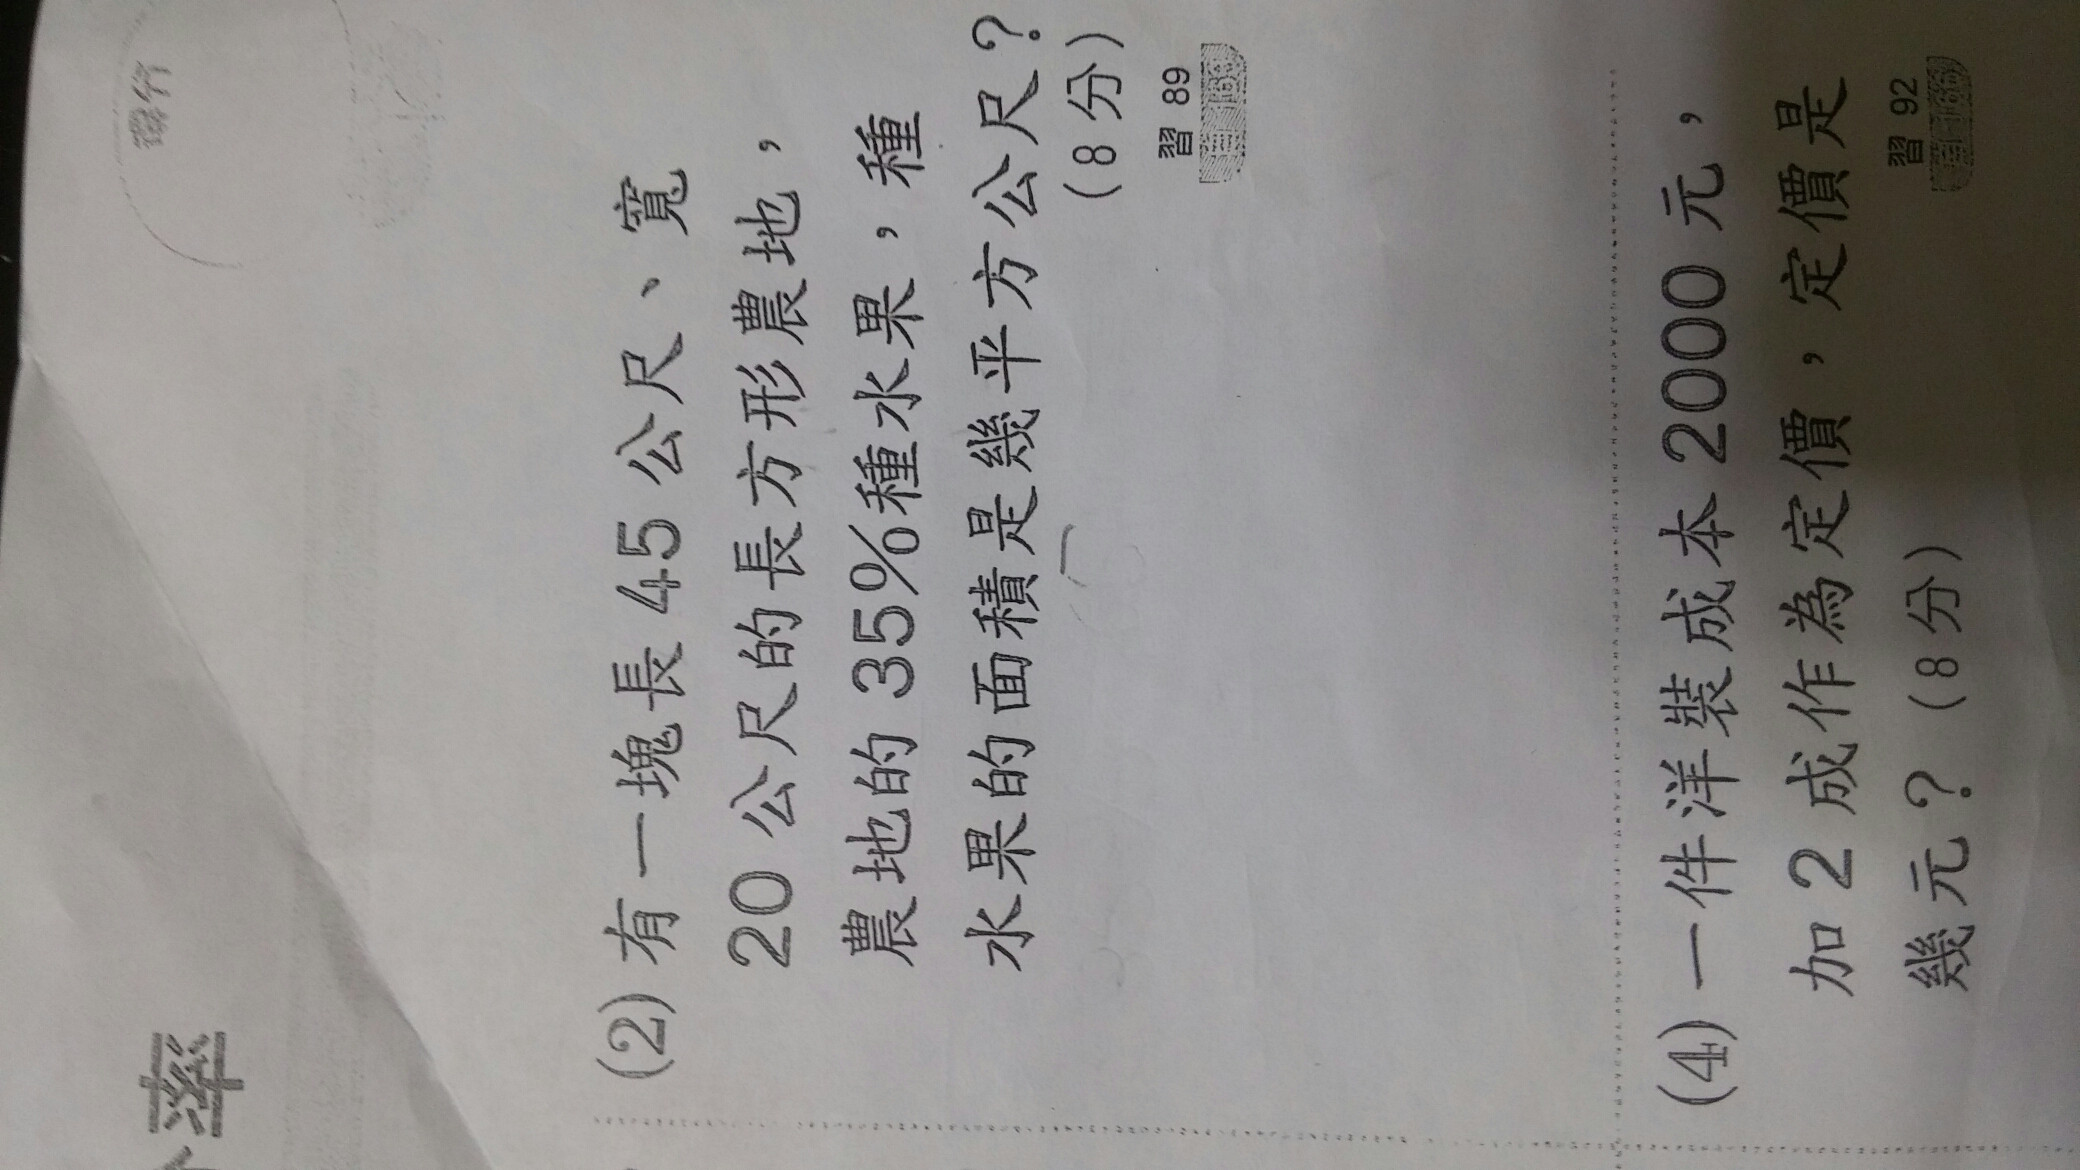 率
(2)有一塊長45公尺、寬
20公尺的長方形農地,
農地的35%種水果,種
水果的面積是幾平方公尺?
(8分)
習 89
(4)一件洋裝成本2000元,
加2成作為定價,定價是
幾元?(8分)
習 92